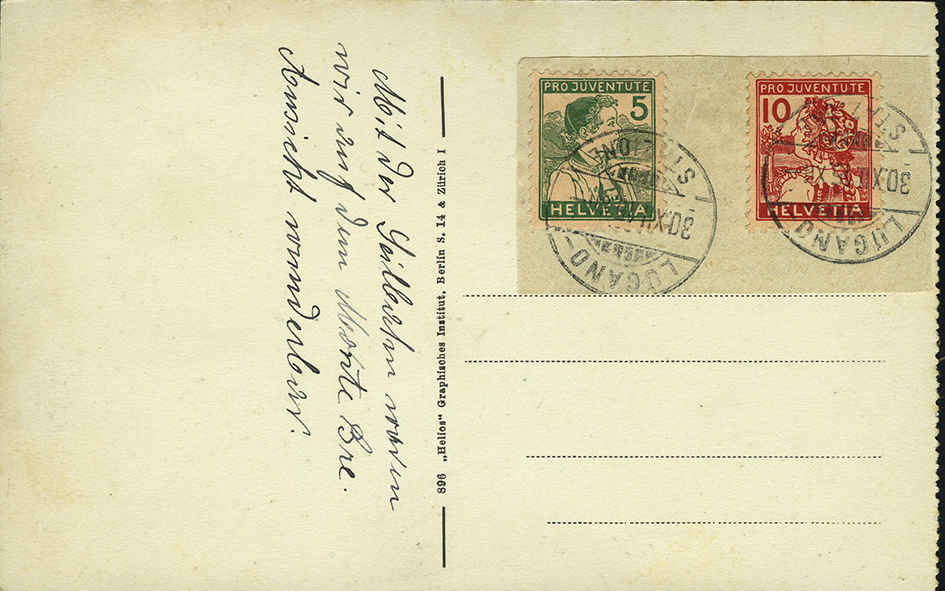 Mit der Seilbahn waren
wir auf dem Monte Bre.
Aussicht wunderbar.
896 „Helios“ Graphisches Institut, Berlin S. 14 & Zürich I
PRO JUVENTUTE
5
HELVETIA
LUGANO-
30.XII
PRO JUVENTUTE
10
HELVETIA
LUGANO
30.XII